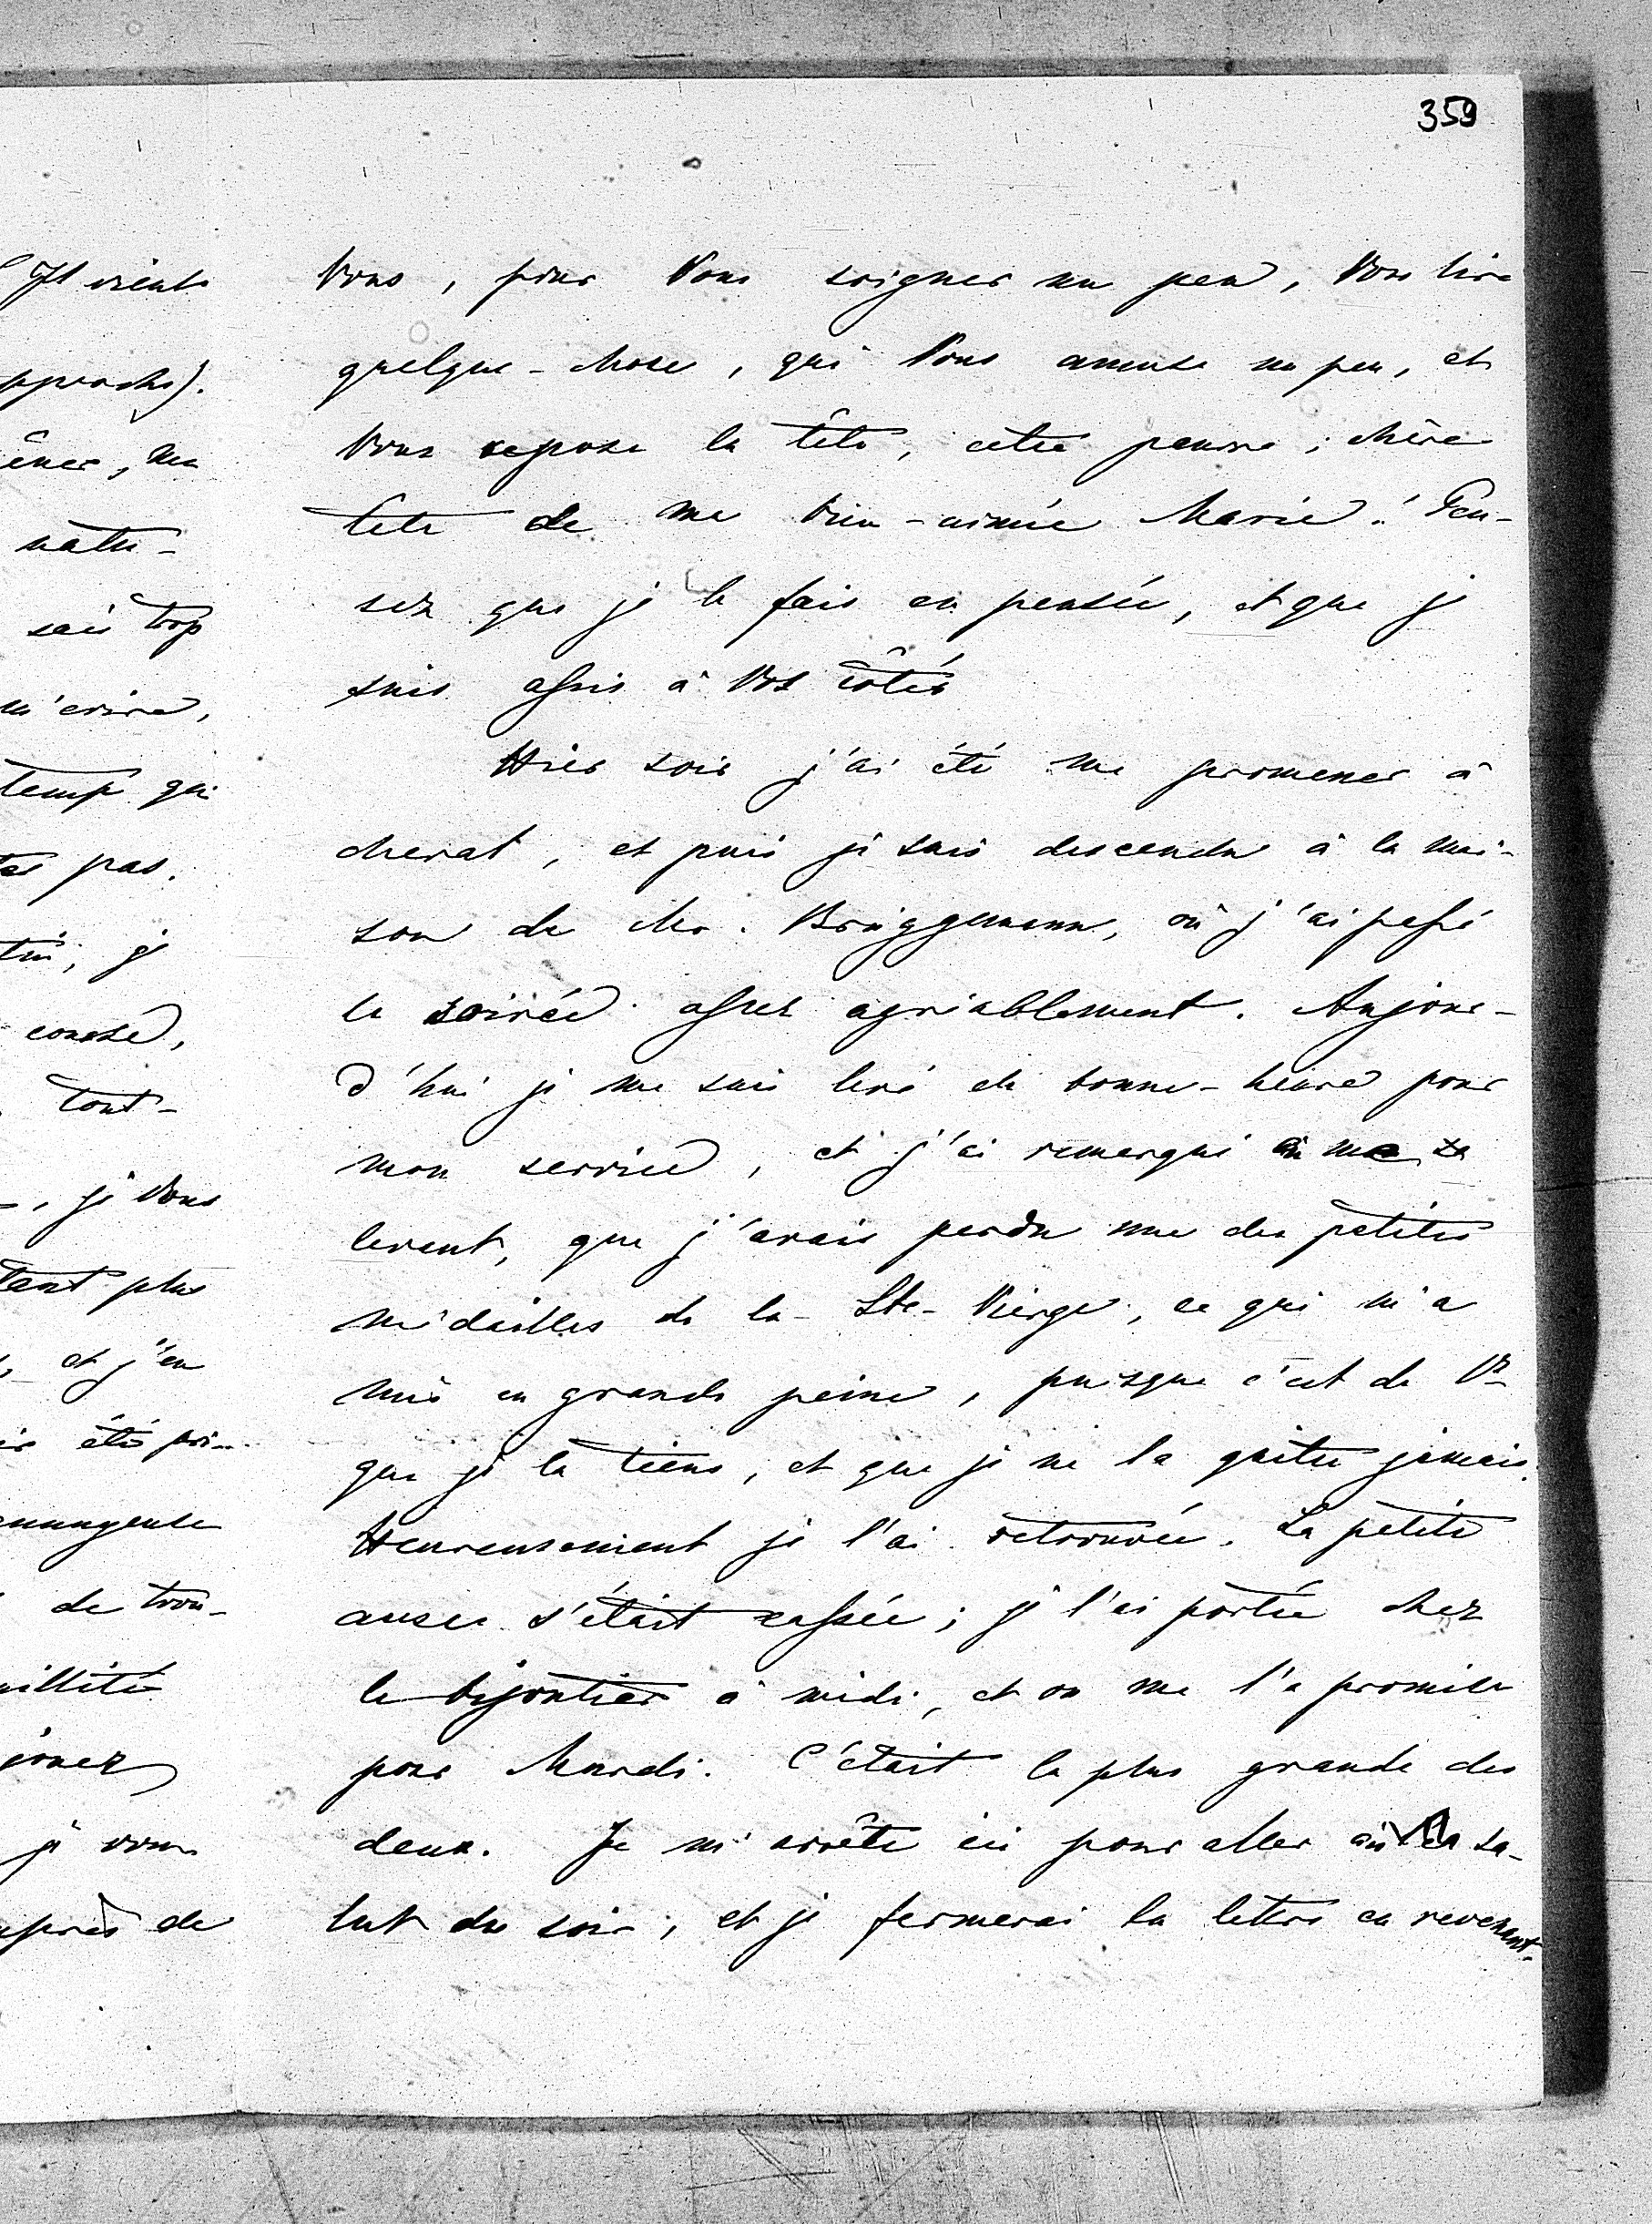 359
Vous, pour Vous soigner un peu, Vous lire
quelque-chose, qui Vous amuse un peu, et
Vous repose la tête, cette pauvre, chère
tête de ma bien-aimée Marie! Pen-
sez que je le fais en pensée, et que je
suis assis à Vos côtés
Hier soir j'ai été me promener à
cheval, et puis je suis descendu à la mai-
son de Mr. Brüggemann, où j'ai passé
la soirée assez agréablement. Aujour-
d'hui je me suis levé de bonne-heure pour
mon service, et j'ai remarqué en me
levant, que j'avais perdu une des petites
médailles de la Ste-Vierge, ce qui m'a
mis en grande peine, puisque c'est de Vs
que je la tiens, et que je ne la quitte jamais.
Heureusement je l'ai retrouvée. La petite
anse s'était cassée; je l'ai portée chez
le bijoutier à midi, et on me l'a promise
pour Mardi. C'était la plus grande des
deux. Je m'arrête ici pour aller au sa-
lut du soir, et je fermerai la lettre en revenant.
Il vient
natu-
sais trop
m'écrire,
temps qui
pas.
je
tout-
, je Vous
tant plus
, et j'en
été pri-
de trou-
jouer
je vous
après de